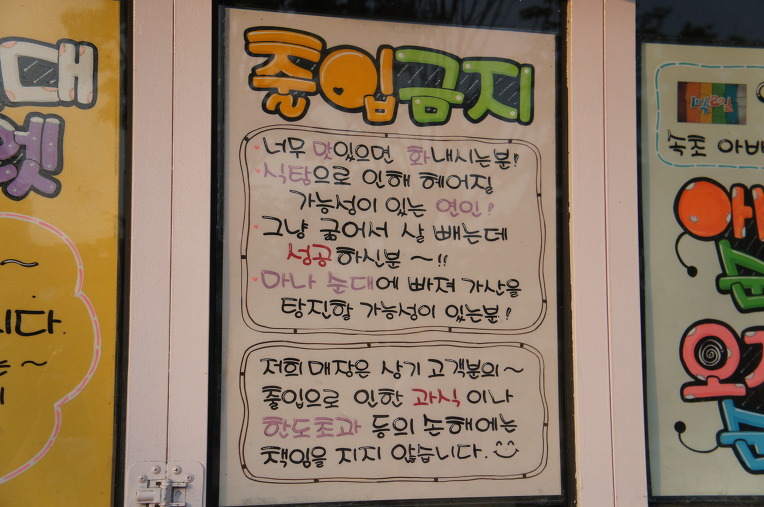 대
왯
~
니다.
는~
출입금지
너무 맛있으면 화내시는분!
식탕으로 인해 헤어질
가능성이 있는 연인!
그냥 굶어서 살 빼는데
성공하신분 ~!!
마나 순대에 빠져 가산을
탕진할 가능성이 있는분!
저희 매장은 상기 고객분의~
출입으로 인한 과식이나
한도초과 등의 손해에는
책임을 지지 않습니다.
속초 아바
오